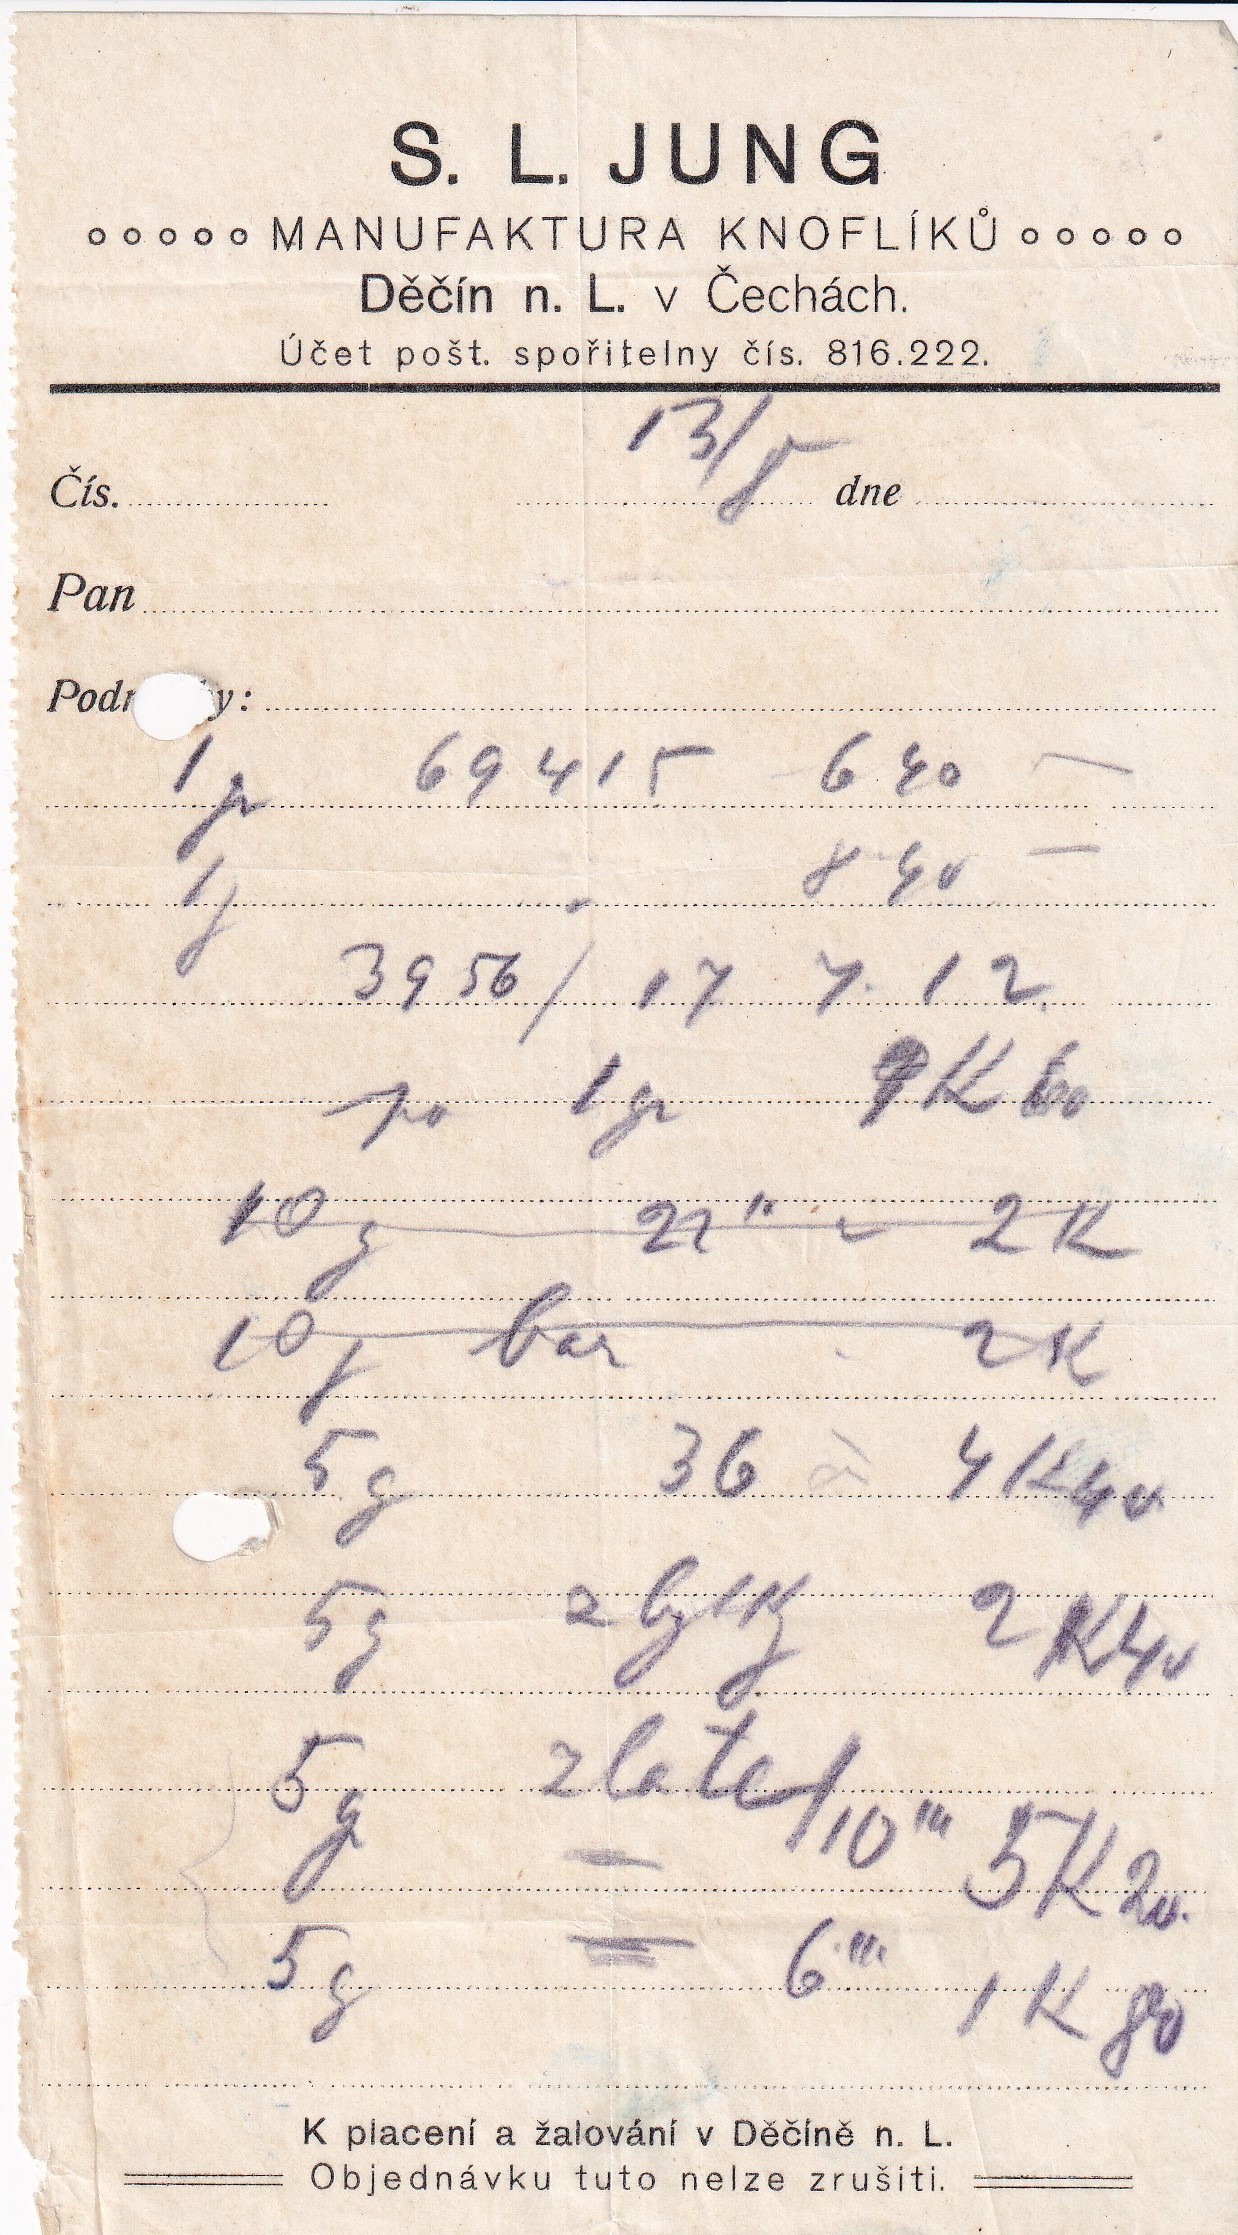 S. L. JUNG
MANUFAKTURA KNOFLÍKŮ
Děčín n. L. v Čechách.
Účet pošt. spořitelny čís. 816.222.
Čís. 13/8 dne
Pan
Podm ky:
1 gr 69415 6 40 —
1 g 8 40 —
3956 / 17 7. 12.
po 1 gr 9K 60
10 g 22" 2 K
10 g bar 2 K
5 g 36 à 4 K 40
5 g zbytky 2 K 40
5 g zlate / 10''' 5 K 20.
5 g = 6''' 1 K 80
K placení a žalování v Děčíně n. L.
Objednávku tuto nelze zrušiti.